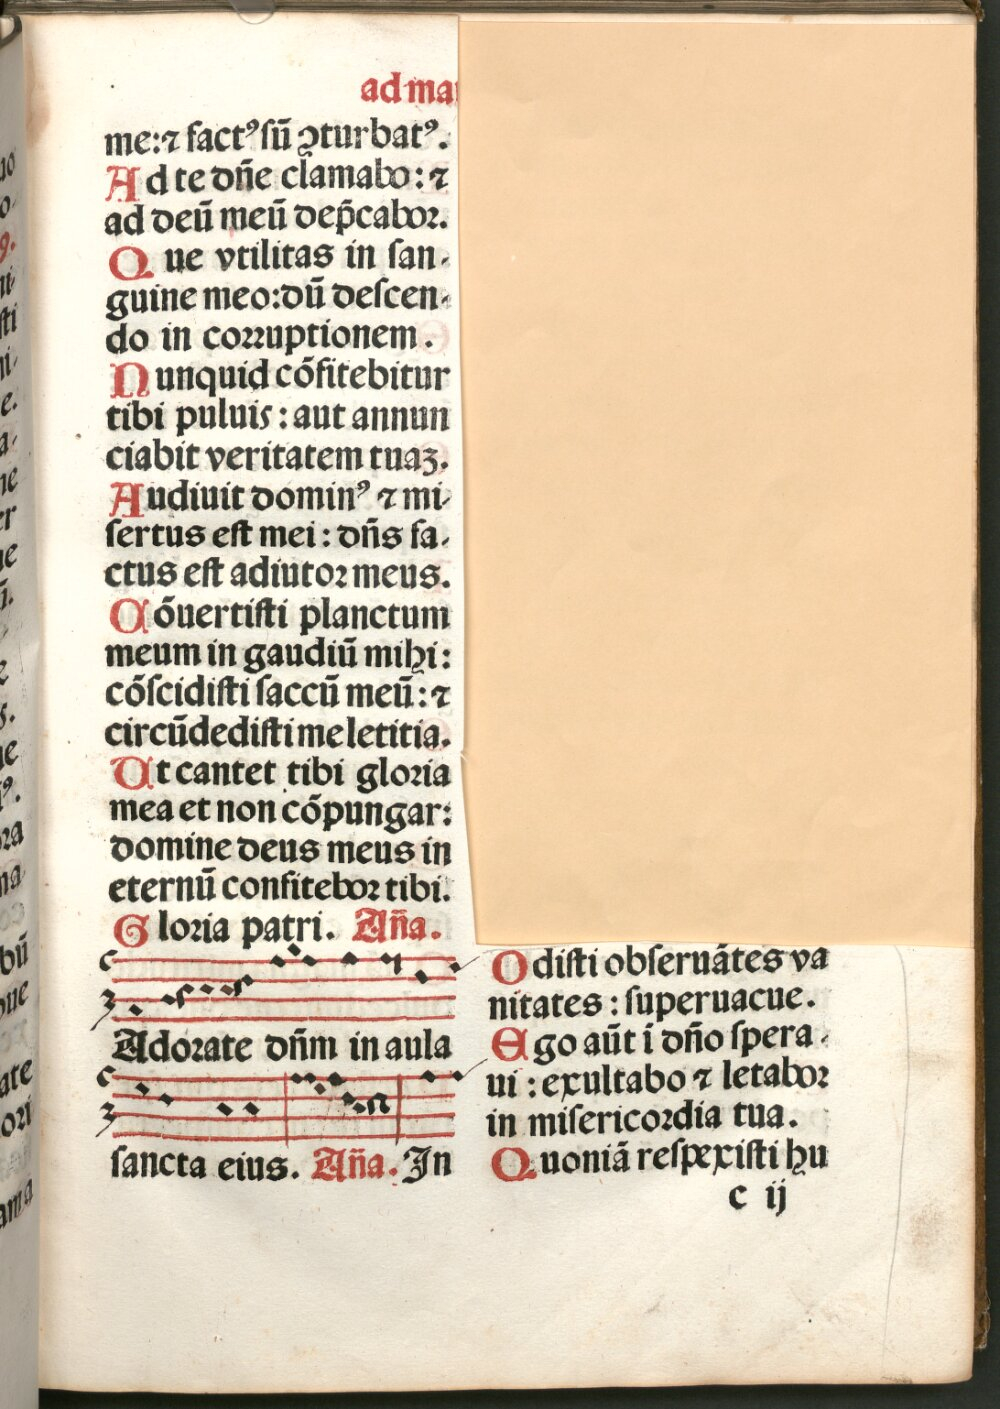 ad ma
me:⁊ factꝰ sũ ꝯturbatꝰ.
Ad te dñe clamabo: ⁊
ad deũ meũ dep̃cabor.
Que vtilitas in san-
guine meo: dũ descen-
do in corruptionem.
Nunquid cõfitebitur
tibi puluis: aut annun
ciabit veritatem tuaꝫ.
Audiuit dominꝰ ⁊ mi-
sertus est mei: dñs fa-
ctus est adiutor meus.
Cõuertisti planctum
meum in gaudiũ mihi:
cõscidisti saccũ meũ: ⁊
circũdedisti me letitia.
Vt cantet tibi gloria
mea et non cõpungar:
domine deus meus in
eternũ confitebor tibi.
Gloria patri. Aña.
Adorate dñm in aula
sancta eius. Aña. In
Odisti obseruãtes va
nitates: superuacue.
Ego aũt ĩ dño spera-
ui: exultabo ⁊ letabor
in misericordia tua.
Quoniã respexisti hu
c ij